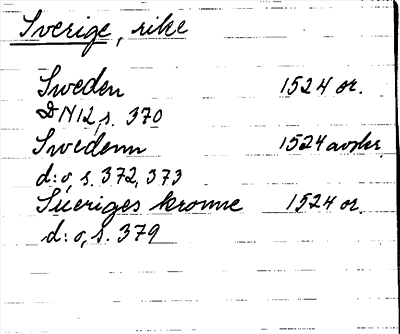 Sverige, rike
Sweden 1524 or.
DN12, s. 370
Swedenn 1524 avskr.
d:o, s. 372, 373
Sueriges kronne 1524 or.
d:o, s. 379